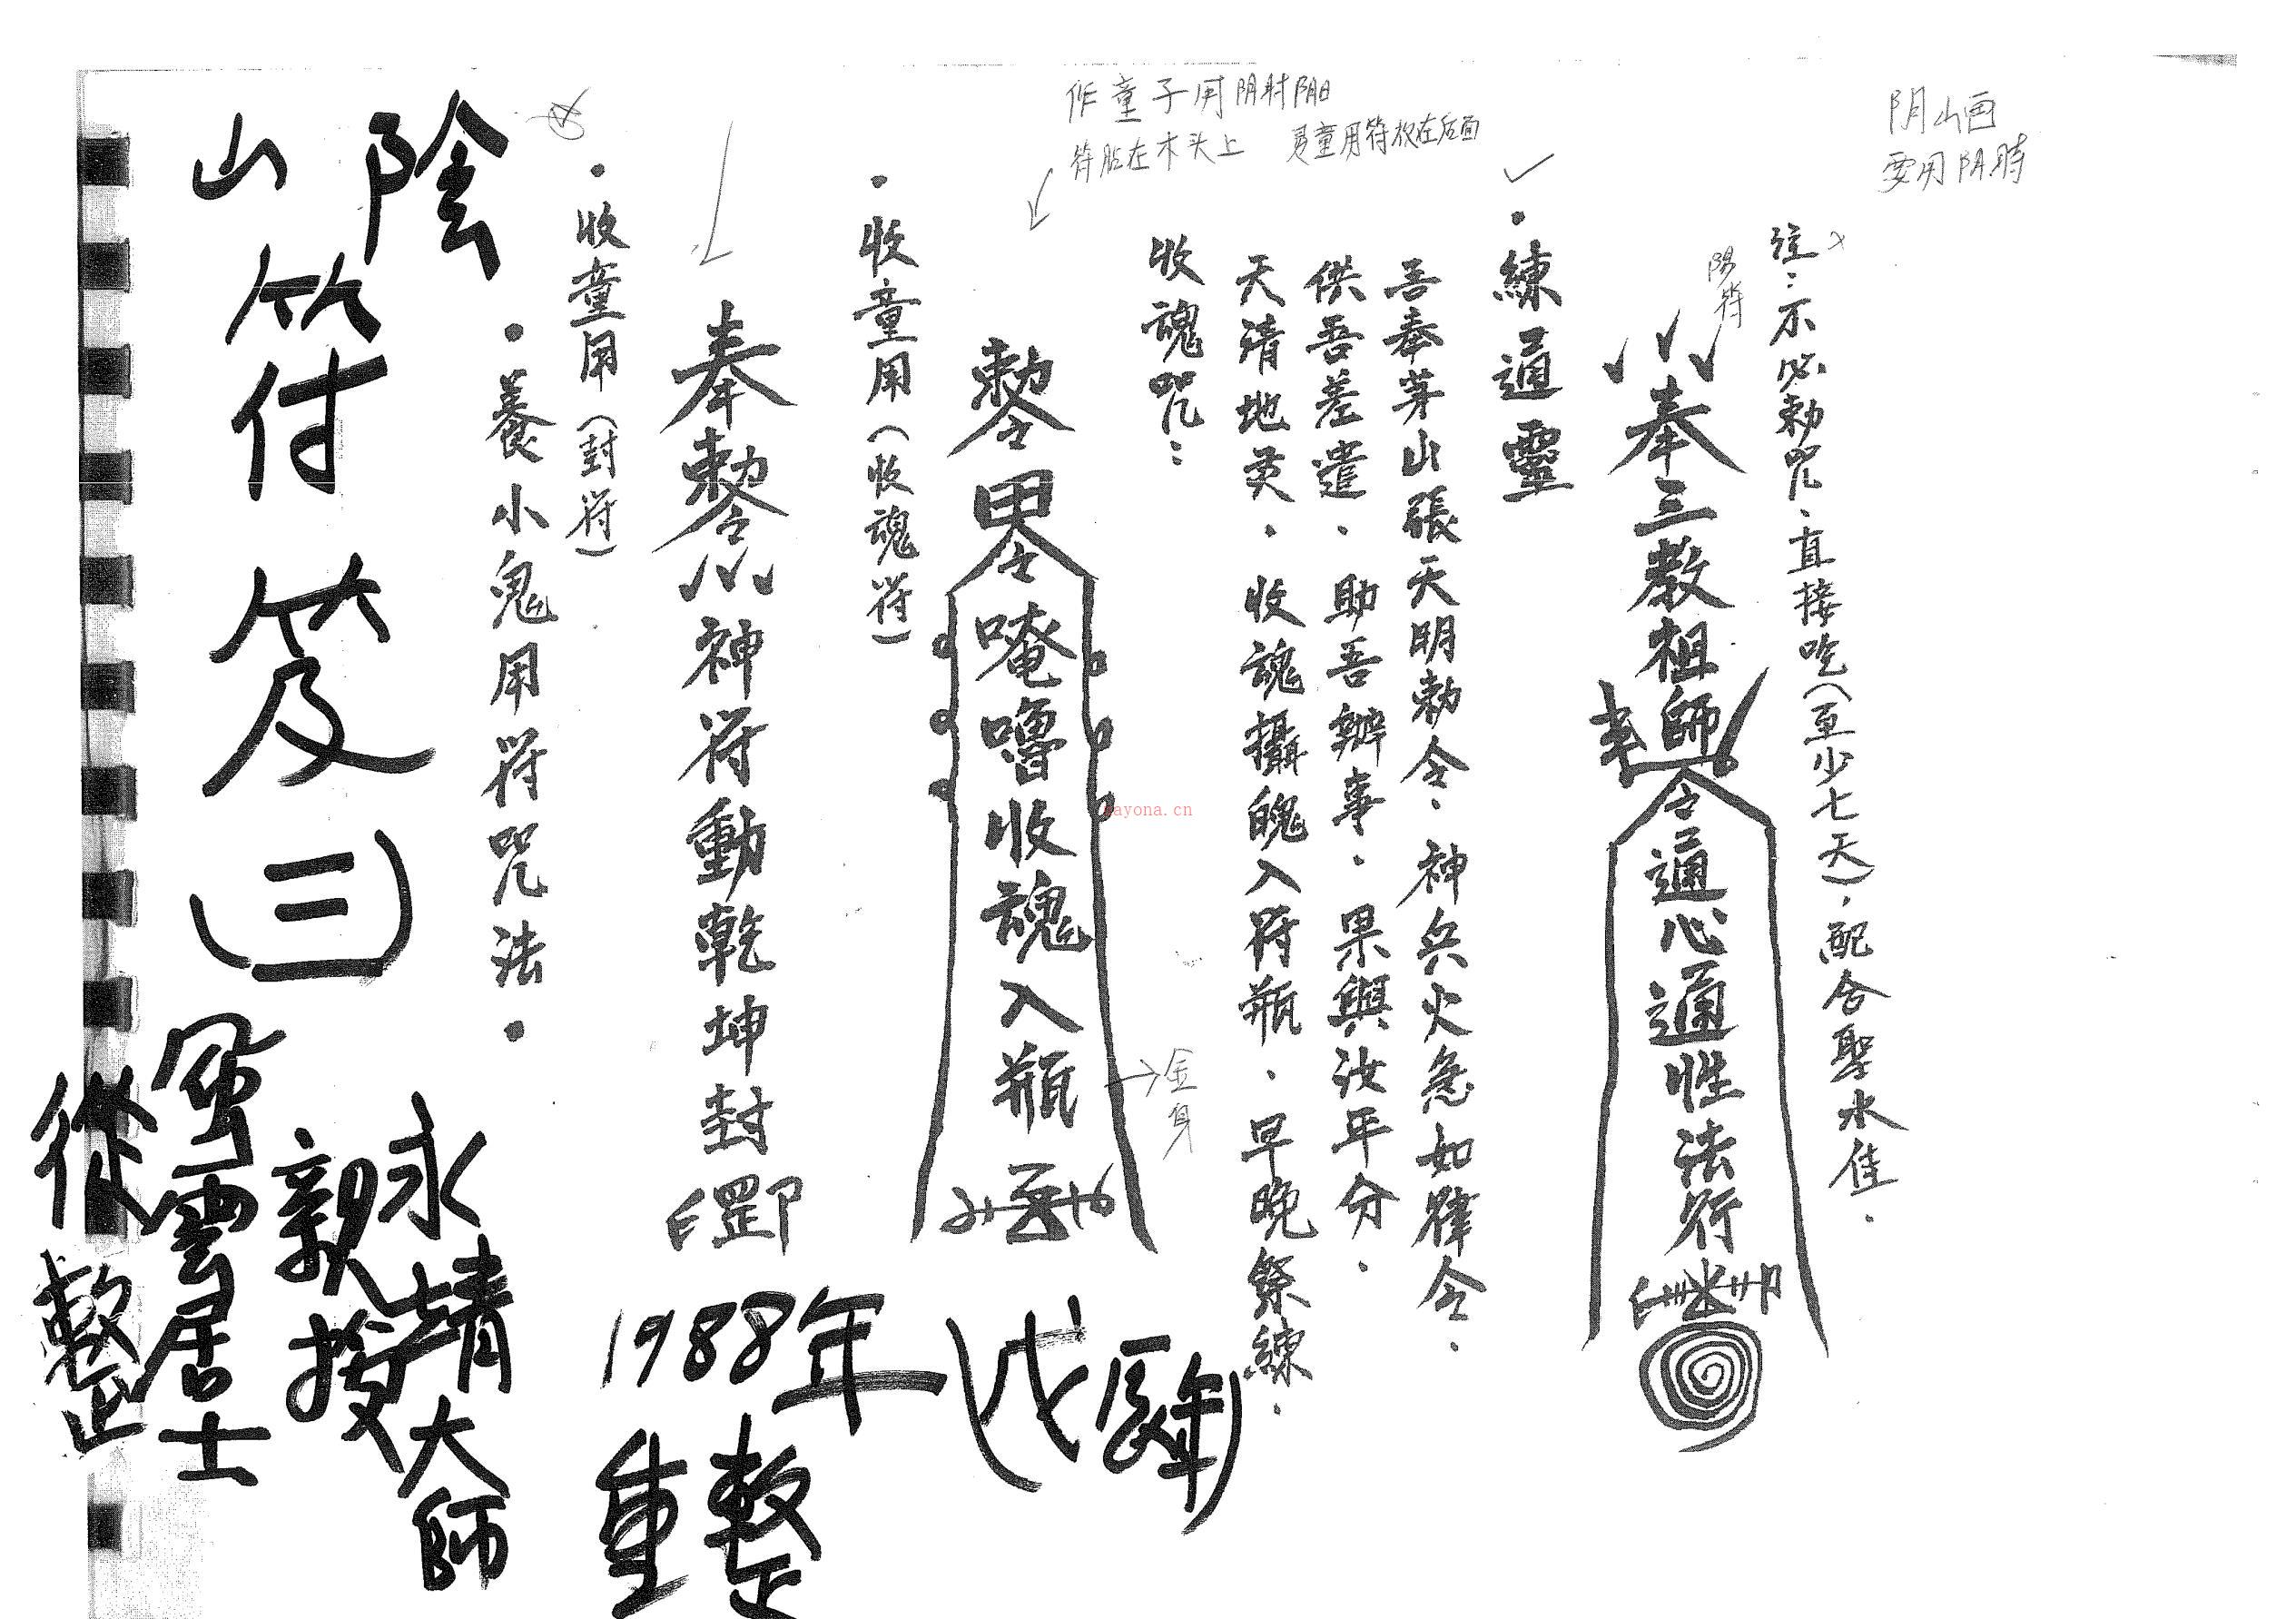 陰山符笈(三)
永靖大師
親授
風雲居士
從整
・養小鬼用符咒法・
・收童用(封符)
奉敕令神符動乾坤封罡印
1988年(戊辰年)
重整
・收童用(收魂符)
敕令
唵嚕收魂入瓶
金身
作童子用阴时阳日
符胆在木头上
童用符放在后面
收魂咒:
天清地灵・收魂攝魄入符瓶・早晚祭練・
供吾差遣・助吾辦事・果與汝平分・
吾奉茅山張天明勅令・神兵火急如律令・
・練通靈
阳符
奉三教祖師令通心通性法行
註:不必勅咒、直接吃(至少七天),配合聖水佳・
阴山画
要用阴時
kayona.cn